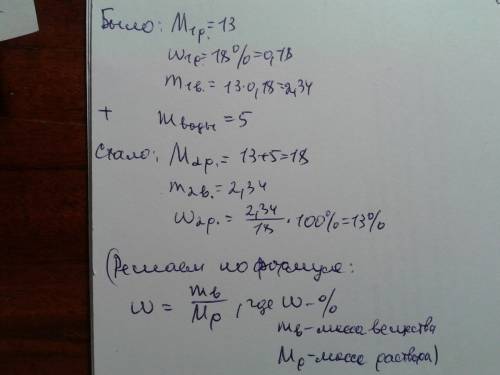 Было: M1р. = 13
ω1р. = 18% = 0,18
m1в. = 13·0,18 = 2,34
+ mводы = 5
Стало: M2р. = 13+5 = 18
m2в. = 2,34
ω2р. = 2,34/18 · 100% = 13%
(Решаем по формуле:
ω = mв/Mр, где ω-%
mв-масса вещества
Mр-масса раствора)